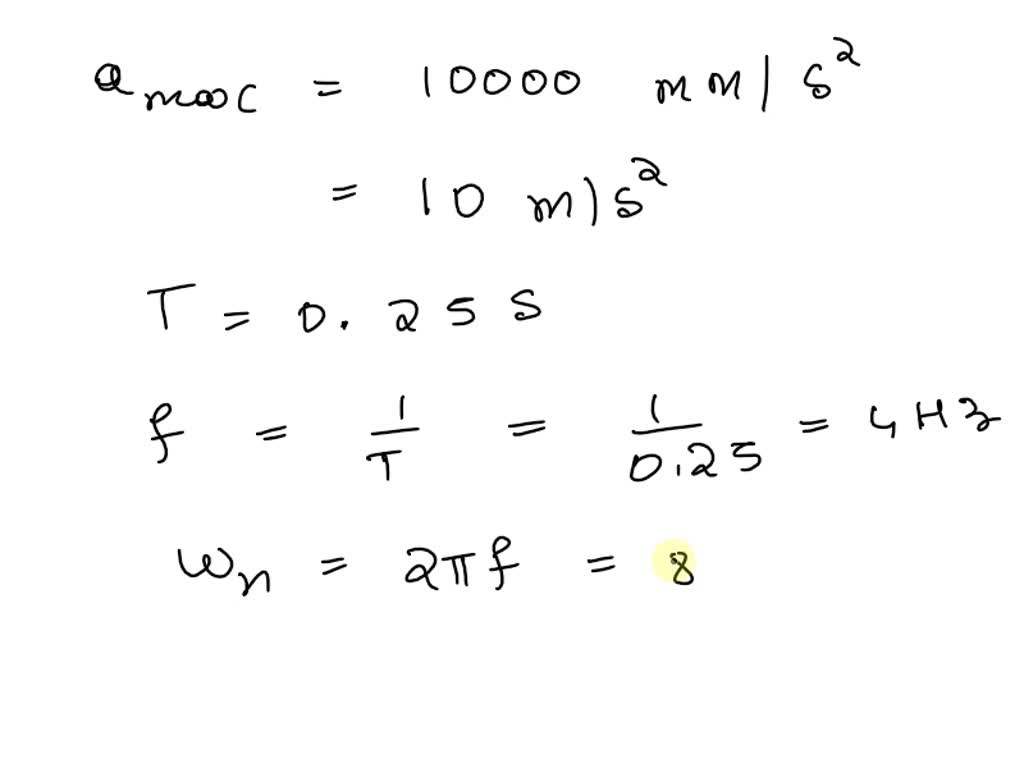 a max = 10000 mm/s²
= 10 m/s²
T = 0.25 s
f = 1/T = 1/0.25 = 4Hz
ωn = 2πf = 8